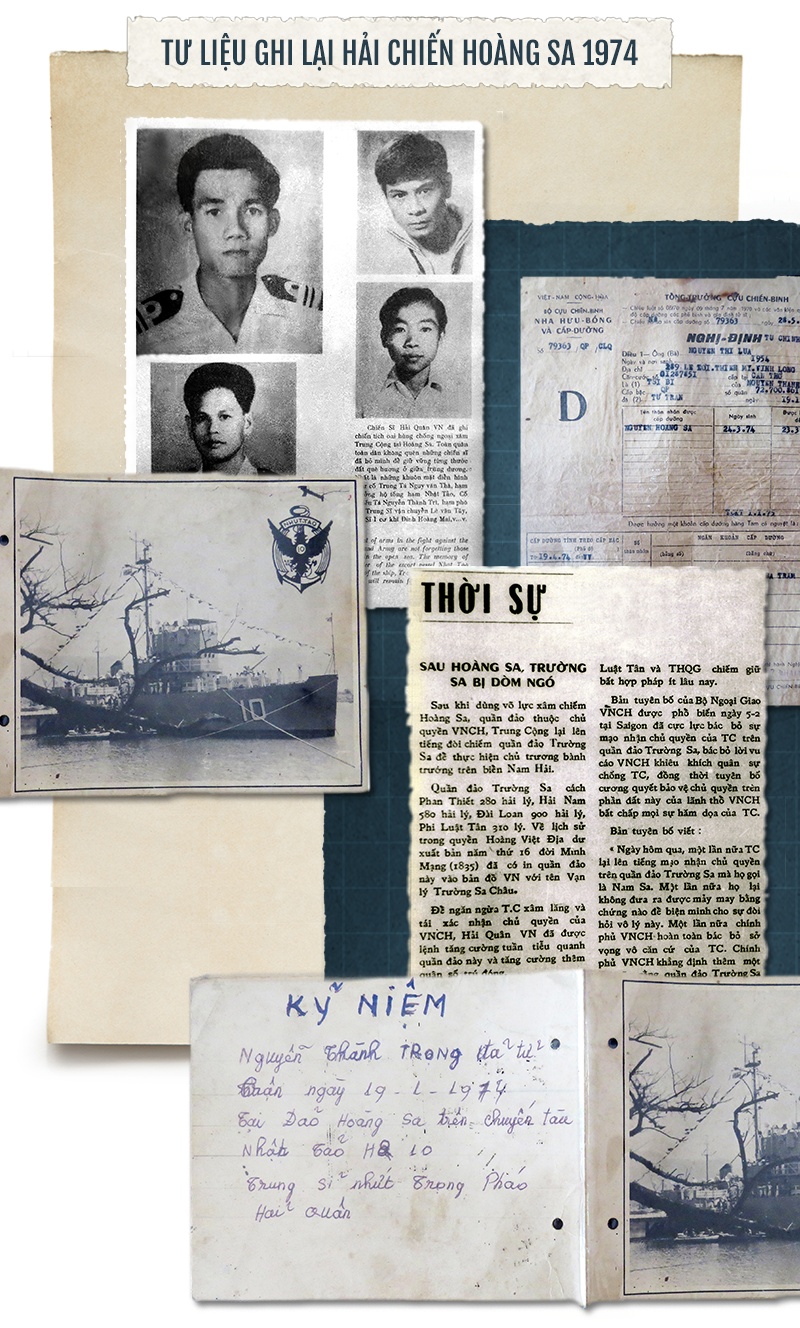 TƯ LIỆU GHI LẠI HẢI CHIẾN HOÀNG SA 1974
Chiến Sĩ Hải Quân VN đã ghi
chiến tích oai hùng chống ngoại xâm
Trung Cộng tại Hoàng Sa. Toàn quân
toàn dân không quên những chiến sĩ
đã bỏ mình để giữ vững từng thước
đất quê hương ở giữa trùng dương.
là những khuôn mặt điển hình
cố Trung Tá Ngụy văn Thà, hạm
hộ tống hạm Nhật Tảo, Cố
Tá Nguyễn Thành Trí, hạm phó
Trung Sĩ vận chuyển Lê văn Tây,
Sĩ I cơ khí Đinh Hoàng Mai,v...v.
of arms in the fight against the
and Army are not forgetting those
the open sea. The memory of
of the escort vessel Nhat Tao
of the ship, Tr
will remain f
VIỆT-NAM CỘNG-HÒA
BỘ CỰU CHIẾN-BINH
NHA HƯU-BỔNG
VÀ CẤP-DƯỠNG
Số 79363 QP/CLQ
D
TỔNG-TRƯỞNG CỰU CHIẾN-BINH
79363
NGHỊ-ĐỊNH
Điều 1— Ông (Bà)
NGUYEN THI LUA
Ngày và nơi sanh 1954
Địa chỉ
01287451
Là (1)
Cấp bậc
TU TRAN
Tên thân nhân được cấp dưỡng
Ngày sinh
NGUYEN HOANG SA
24.3.74
Được hưởng một khoản cấp dưỡng hàng
CẤP DƯỠNG TÍNH THEO CẤP BẬC
NGÂN KHOẢN CẤP DƯỠNG
19.4.74
NHỰT TẢO
10
10
THỜI SỰ
SAU HOÀNG SA, TRƯỜNG
SA BỊ DÒM NGÓ
Sau khi dùng võ lực xâm chiếm
Hoàng Sa, quần đảo thuộc chủ
quyền VNCH, Trung Cộng lại lên
tiếng đòi chiếm quần đảo Trường
Sa để thực hiện chủ trương bành
trướng trên biển Nam Hải.
Quần đảo Trường Sa cách
Phan Thiết 280 hải lý, Hải Nam
580 hải lý, Đài Loan 900 hải lý,
Phi Luật Tân 310 lý. Về lịch sử
trong quyển Hoàng Việt Địa dư
xuất bản năm thứ 16 đời Minh
Mạng (1835) đã có in quần đảo
này vào bản đồ VN với tên Vạn
lý Trường Sa Châu.
Để ngăn ngừa T.C xâm lăng và
tái xác nhận chủ quyền của
VNCH, Hải Quân VN đã được
lệnh tăng cường tuần tiễu quanh
quần đảo này và tăng cường thêm
quân số trú đóng.
Luật Tân và THQG chiếm giữ
bất hợp pháp ít lâu nay.
Bản tuyên bố của Bộ Ngoại Giao
VNCH được phổ biến ngày 5-2
tại Saigon đã cực lực bác bỏ sự
mạo nhận chủ quyền của TC trên
quần đảo Trường Sa, bác bỏ lời vu
cáo VNCH khiêu khích quân sự
chống TC, đồng thời tuyên bố
cương quyết bảo vệ chủ quyền trên
phần đất này của lãnh thổ VNCH
bất chấp mọi sự hăm dọa của TC.
Bản tuyên bố viết :
« Ngày hôm qua, một lần nữa TC
lại lên tiếng mạo nhận chủ quyền
trên quần đảo Trường Sa mà họ gọi
là Nam Sa. Một lần nữa họ lại
không đưa ra được mảy may bằng
chứng nào để biện minh cho sự đòi
hỏi vô lý này. Một lần nữa chính
phủ VNCH hoàn toàn bác bỏ sở
vọng vô căn cứ của TC. Chính
phủ VNCH khẳng định thêm một
quần đảo Trường Sa
KỶ NIỆM
Nguyễn Thành TRọng đã tử
trận ngày 19-1-1974
Tại Đảo Hoàng Sa trên chuyến tàu
Nhật Tảo HQ 10
Trung sĩ nhứt Trọng Pháo
Hải quân